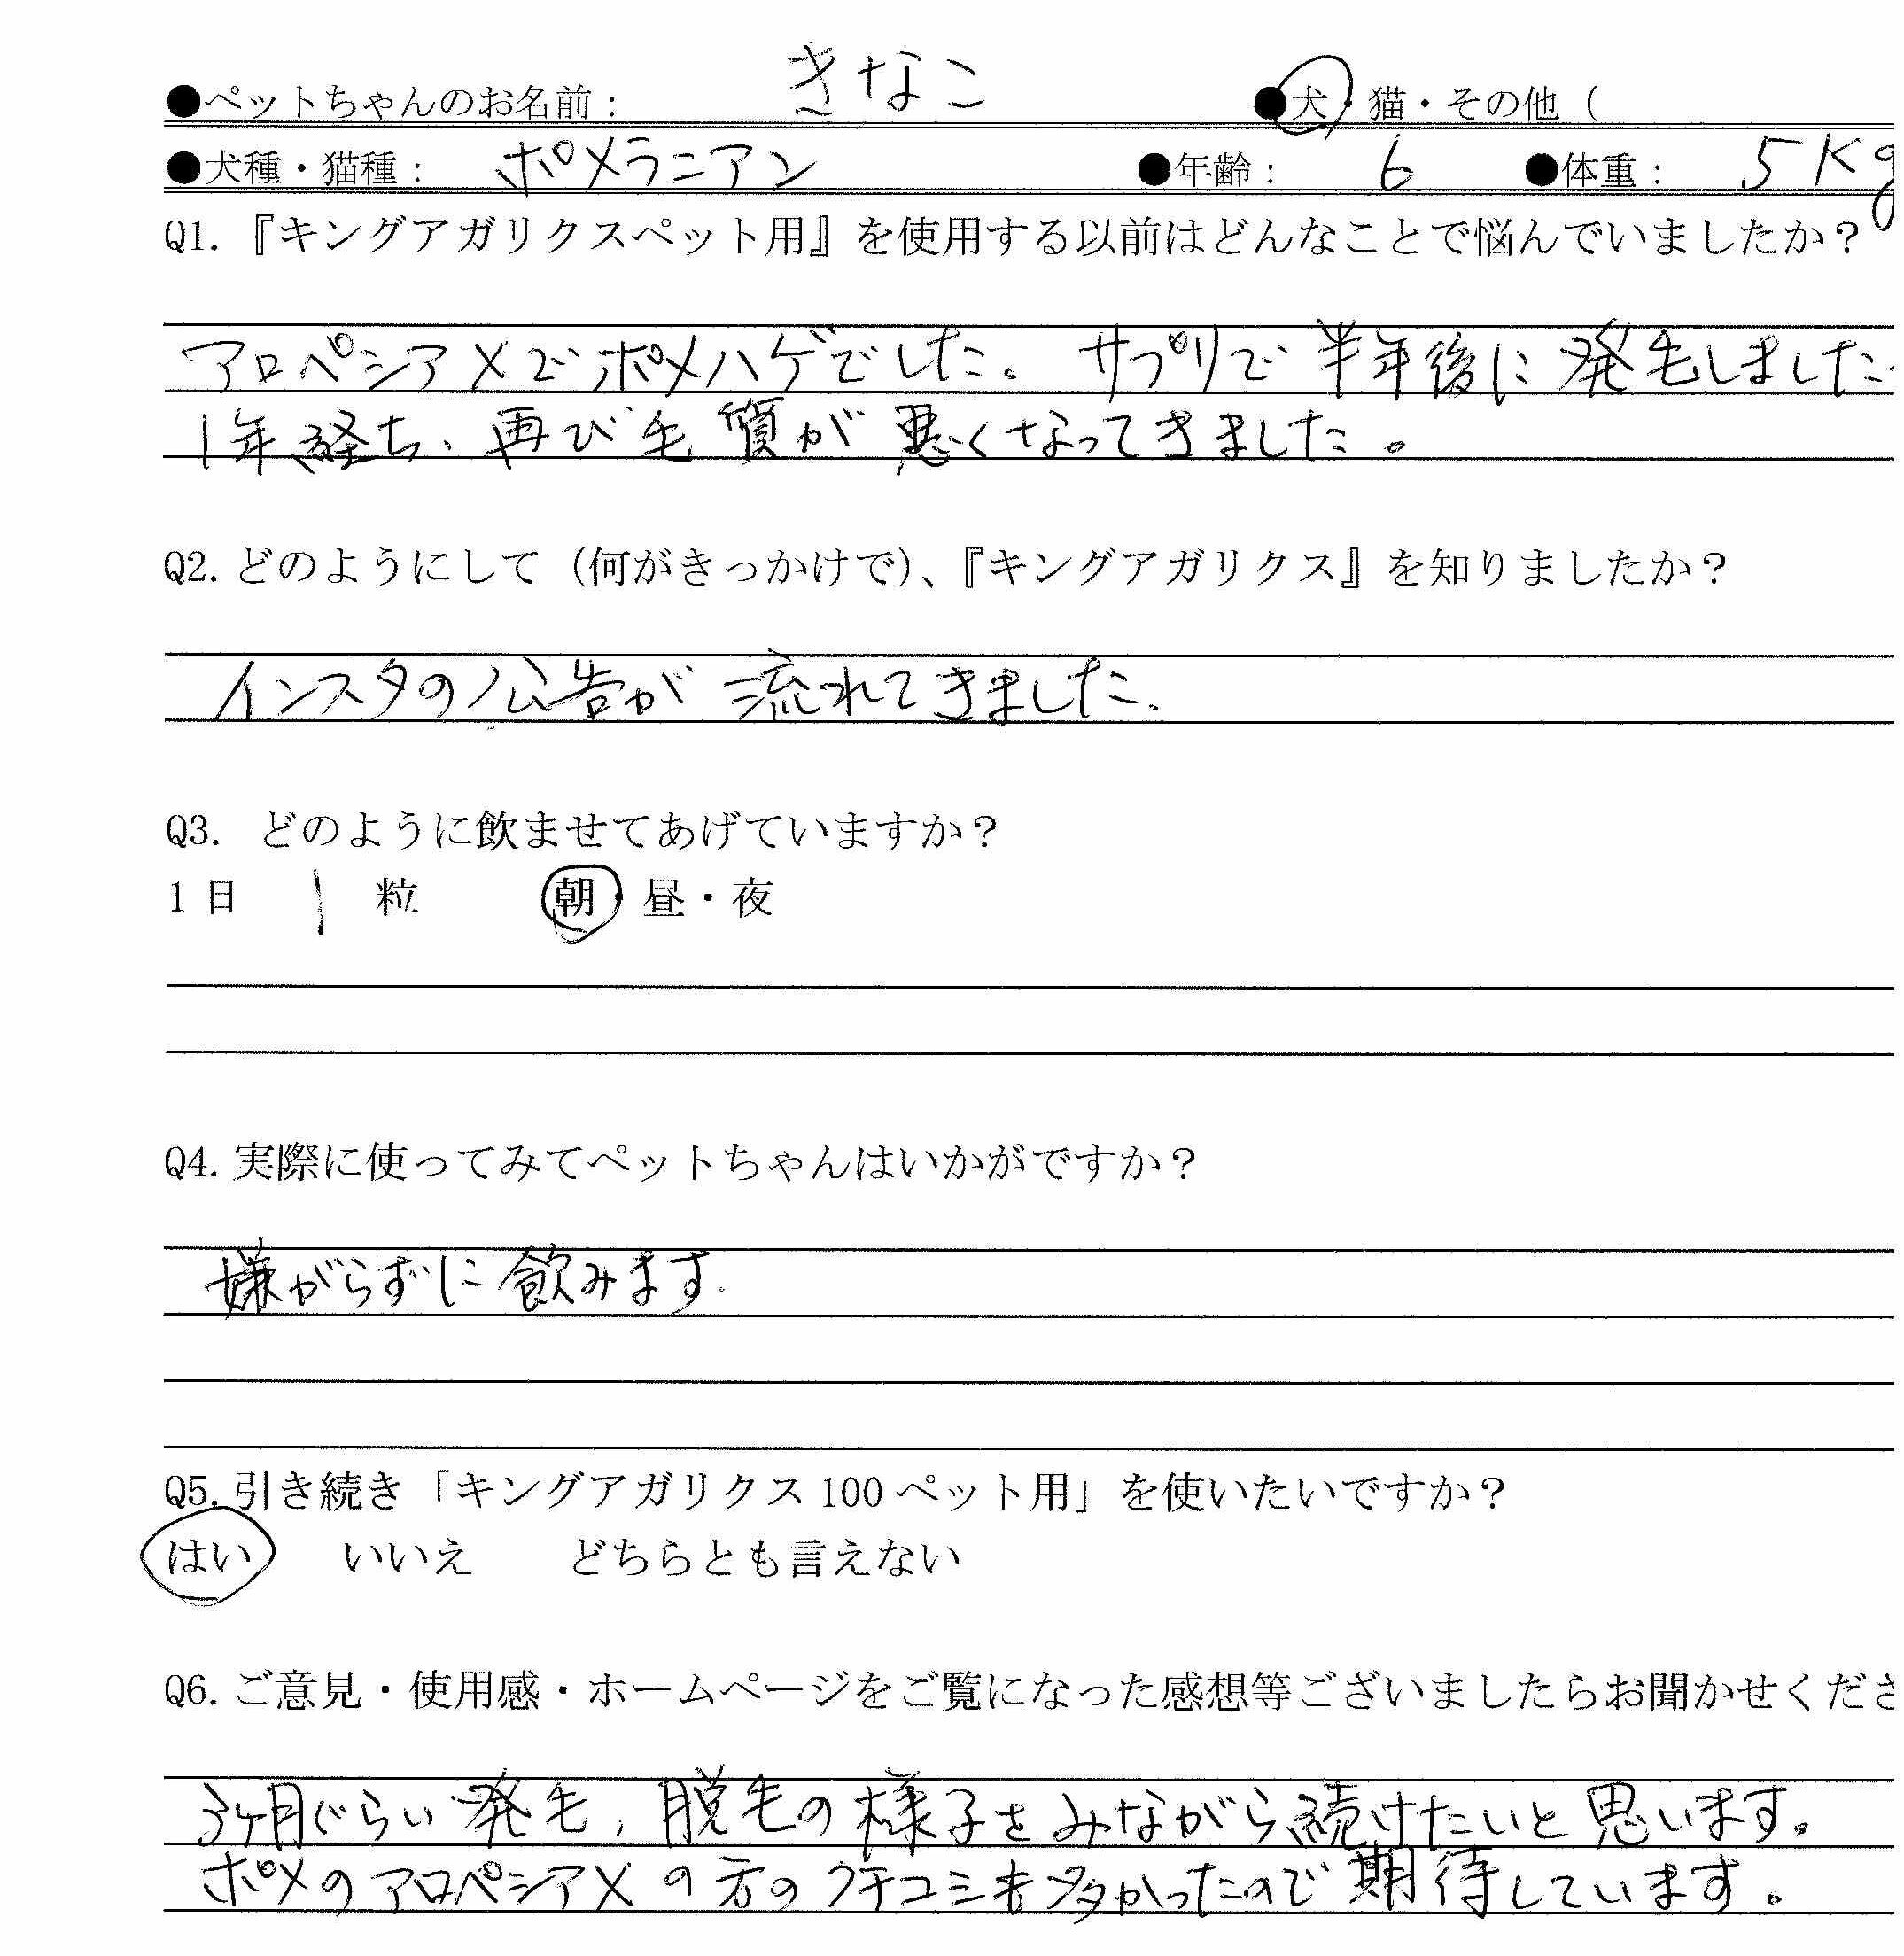 ●ペットちゃんのお名前： きなこ ●犬・猫・その他（
●犬種・猫種： ポメラニアン ●年齢： 6 ●体重： 5Kg
Q1.『キングアガリクスペット用』を使用する以前はどんなことで悩んでいましたか？
アロペシアXでポメハゲでした。サプリで半年後に発毛しました.
1年経ち、再び毛質が悪くなってきました。
Q2.どのようにして（何がきっかけで）、『キングアガリクス』を知りましたか？
インスタの公告が流れてきました.
Q3. どのように飲ませてあげていますか？
1日 1 粒 朝・昼・夜
Q4.実際に使ってみてペットちゃんはいかがですか？
嫌がらずに飲みます.
Q5.引き続き「キングアガリクス100ペット用」を使いたいですか？
はい いいえ どちらとも言えない
Q6.ご意見・使用感・ホームページをご覧になった感想等ございましたらお聞かせくださ
3ヶ月ぐらい発毛、脱毛の様子をみながら続けたいと思います。
ポメのアロペシアXの方のクチコミも多かったので期待しています。